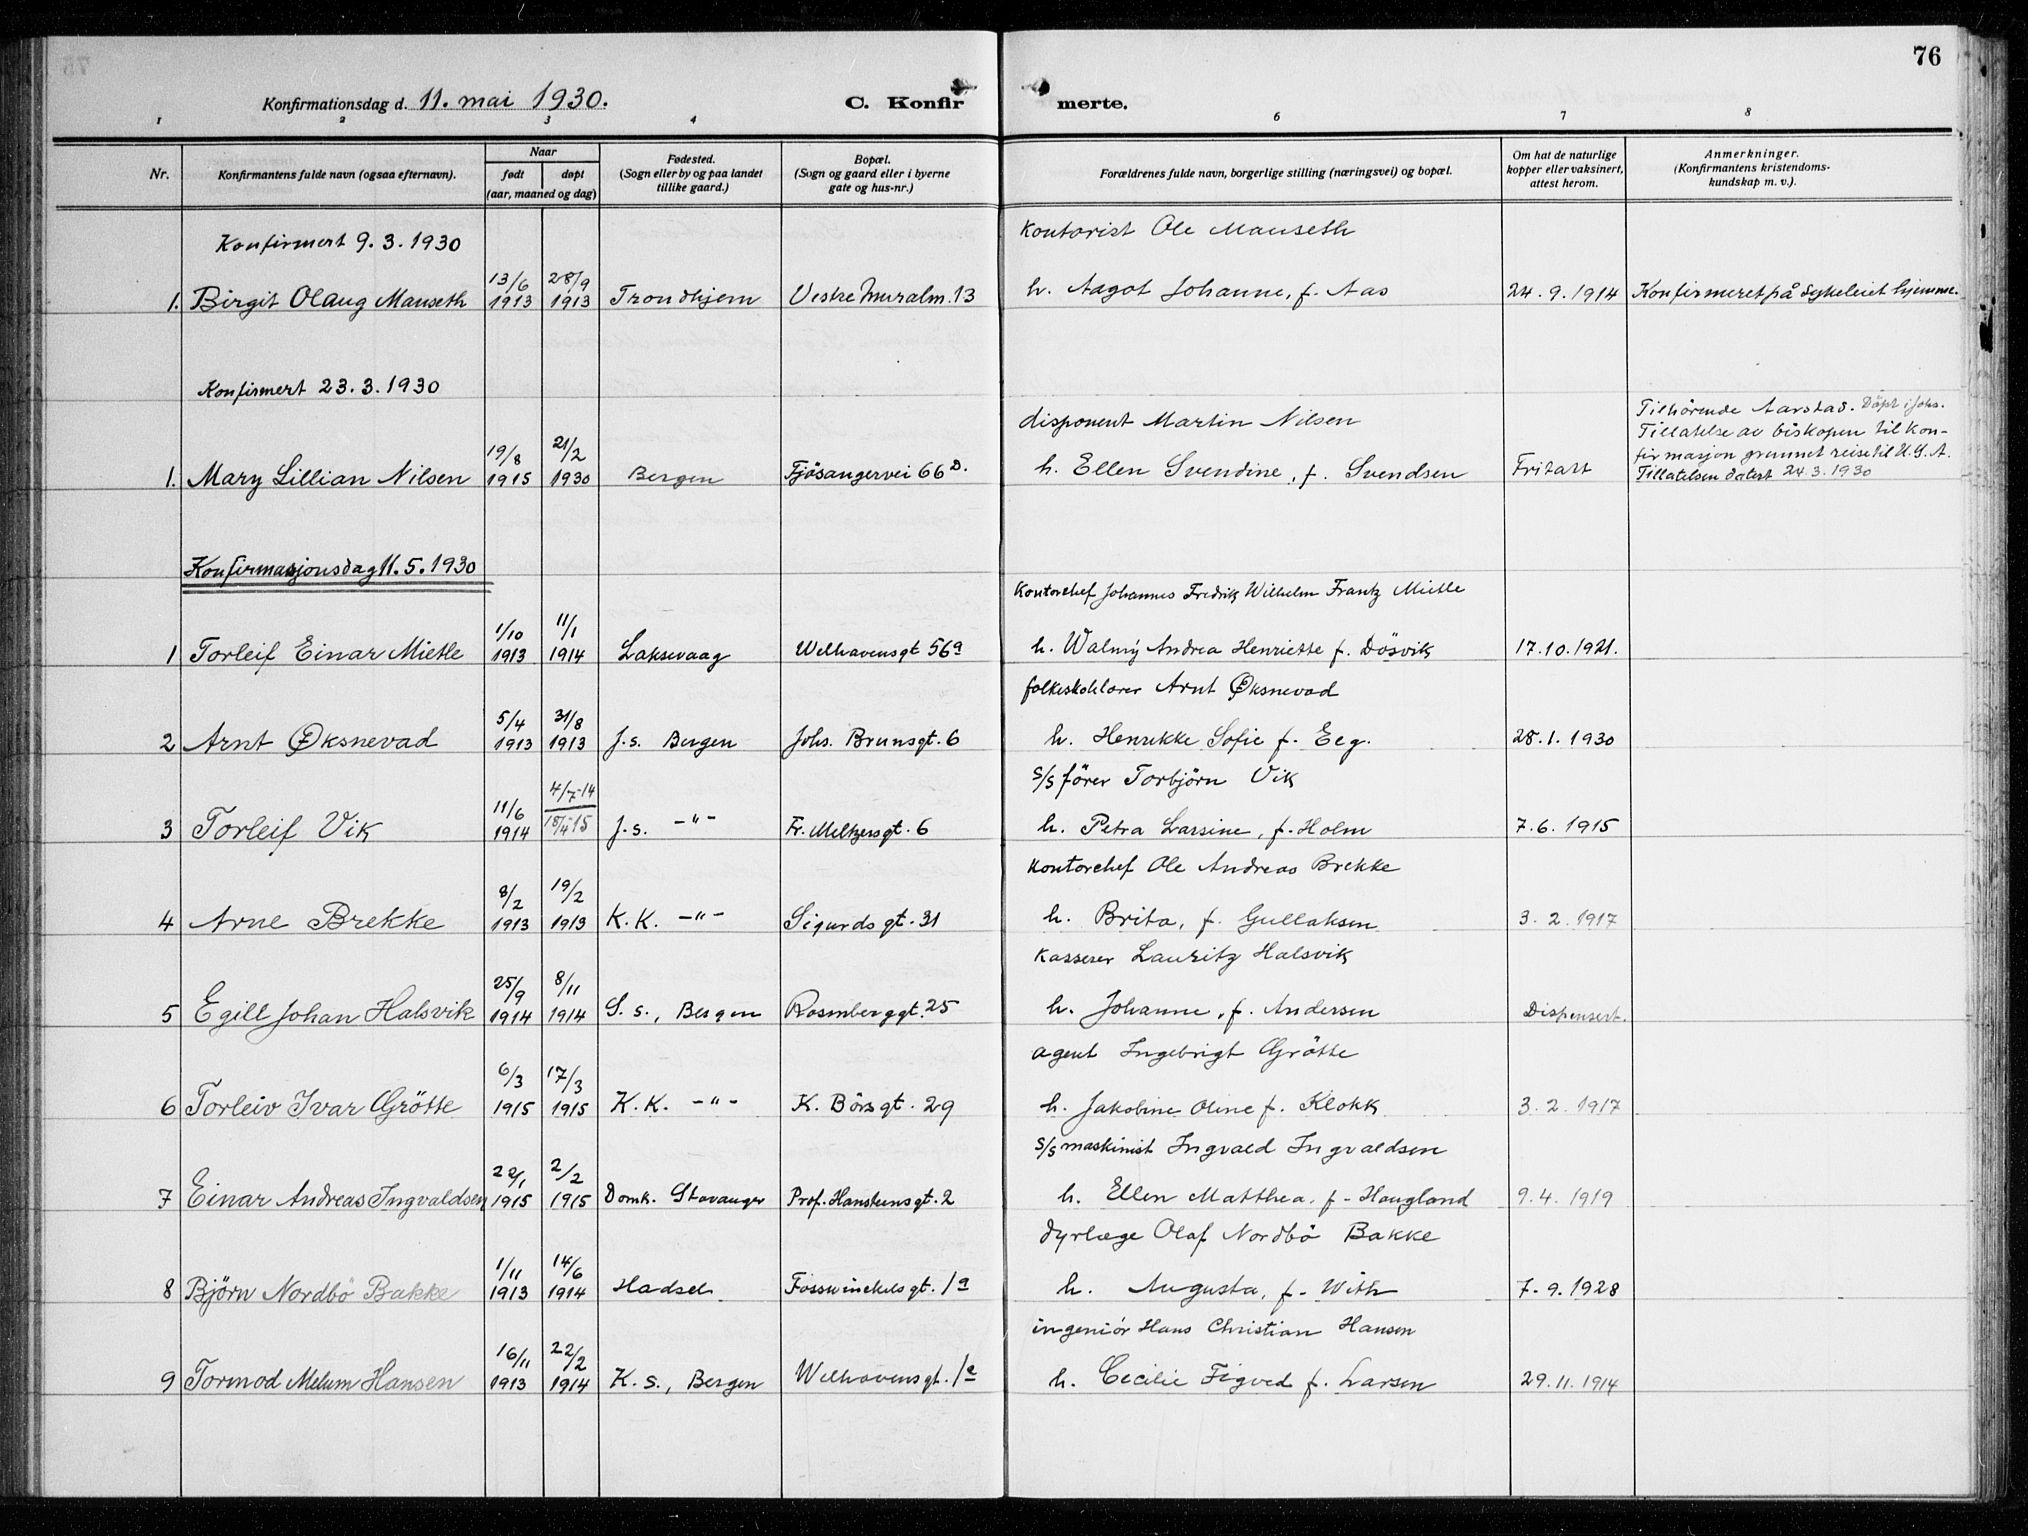 76
Konfirmationsdag d. 11. mai 1930.
C. Konfir merte.
1 2 3 4 6 7 8
Nr.
Konfirmantens fulde navn (ogsaa efternavn).
Naar
født døpt
(aar, maaned og dag)
Fødested.
(Sogn eller by og paa landet
tillike gaard.)
Bopæl.
(Sogn og gaard eller i byerne
gate og hus-nr.)
Forældrenes fulde navn, borgerlige stilling (næringsvei) og bopæl.
Om hat de naturlige
kopper eller vaksinert,
attest herom.
Anmerkninger.
(Konfirmantens kristendoms-
kundskap m. v.).
Konfirmert 9.3.1930
Kontorist Ole Mauseth
13/6 28/9
1. Birgit Olaug Mauseth 1913 1913 Trondhjem Vestre Muralm. 13 h. Aagot Johanne, f. Aas 24.9.1914 Konfirmeret på sykeleiet hjemme.
Konfirmert 23.3.1930
disponent Martin Nilsen
Tilhörende Aarstad. Döpt i Johs.
Tillatelse av biskopen til kon-
firmasjon grunnet reise til U.S.A.
Tillatelsen datert 24.3.1930
19/8 21/2
1. Mary Lillian Nilsen 1915 1930 Bergen Fjösangervei 66 D. h. Ellen Svendine, f. Svendsen Fritatt
Konfirmasjonsdag 11.5.1930
Kontorchef Johannes Fredrik Wilhelm Frantz Mietle
1/10 11/1
1 Torleif Einar Mietle 1913 1914 Laksevaag Welhavensgt 56a h. Walmy Andrea Henriette f. Dösvik 17.10.1921.
folkeskolelærer Arnt Øksnevad
5/4 31/8
2 Arnt Øksnevad 1913 1913 J.s. Bergen Johs. Brunsgt. 6 h. Henrikke Sofie f. Eeg. 28.1.1930
s/s förer Torbjörn Vik
11/6 4/7-14
3 Torleif Vik 1914 18/4-15 J.s. -"- Fr. Meltzersgt. 6 h. Petra Larsine, f. Holm 7.6.1915
Kontorchef Ole Andreas Brekke
8/2 19/2
4 Arne Brekke 1913 1913 K.K. -"- Sigurdsgt. 31 h. Brita, f. Gullaksen 3.2.1917
Kasserer Lauritz Halsvik
25/9 8/11
5 Egill Johan Halsvik 1914 1914 S.s., Bergen Rosenberggt. 25 h. Johanne, f. Andersen Dispensert.
agent Ingebrigt Grötte
6/3 17/3
6 Torleiv Ivar Grötte 1915 1915 K.K. -"- K. Börsgt. 29 h. Jakobine Oline f. Klokk 3.2.1917
s/s maskinist Ingvald Ingvaldsen
22/1 2/2
7 Einar Andreas Ingvaldsen 1915 1915 Domk. Stavanger Prof. Hansteensgt. 2 h. Ellen Matthea, f. Haugland 9.4.1919
dyrlæge Olaf Nordbö Bakke
1/11 14/6
8 Björn Nordbö Bakke 1913 1914 Hadsel Fosswinckelsgt. 1a h. Augusta, f. With 7.9.1928
ingeniör Hans Christian Hansen
16/11 22/2
9 Tormod Melum Hansen 1913 1914 K.s., Bergen Welhavensgt. 1 h. Cecilie Figved f. Larsen 29.11.1914